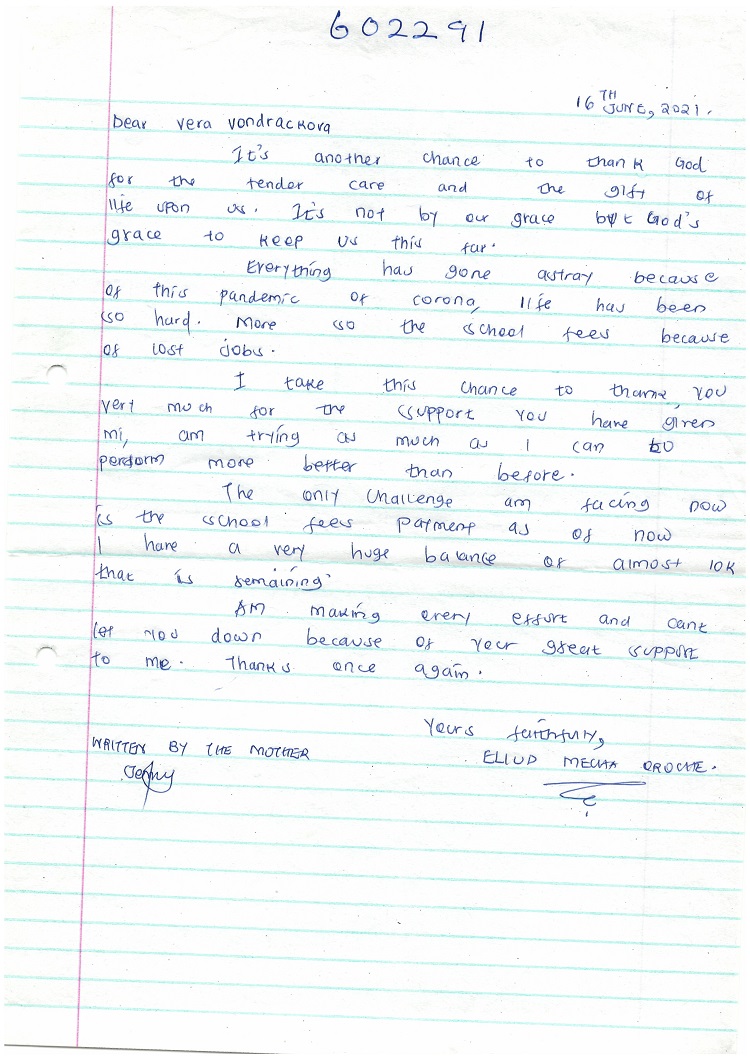 602291
16TH JUNE, 2021.
Dear Vera Vondrackova
It's another chance to thank God
for the tender care and the gift of
life upon us. It's not by our grace but God's
grace to keep us this far.
Everything has gone astray because
of this pandemic of corona, life has been
so hard. More so the school fees because
of lost jobs.
I take this chance to thank you
very much for the support you have given
mi, am trying as much as I can to
perform more better than before.
The only challenge am facing now
is the school fees payment as of now
I have a very huge balance of almost 10K
that is remaining.
AM making every effort and cant
let you down because of your great support
to me. Thanks once again.
Yours faithfully,
WRITTEN BY THE MOTHER
ELIUD MECHA OROCHE.
Jenny